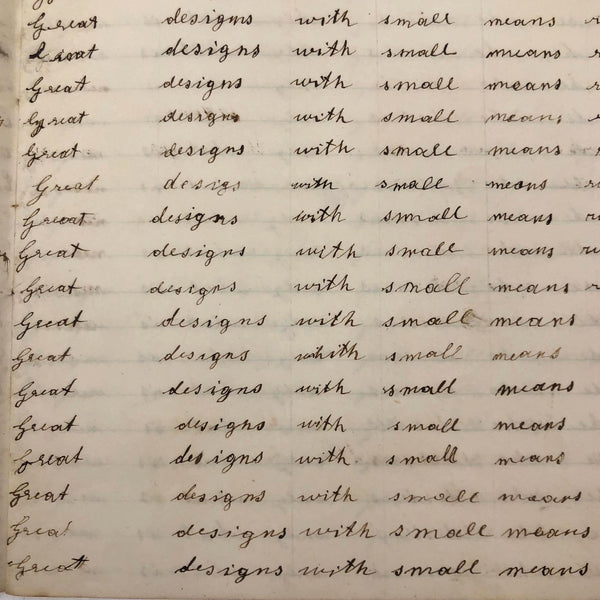 Great designs with small means r
Great designs with small means r
Great designs with small means r
Great designs with small means r
Great designs with small means r
Great desigs with small means r
Great designs with small means ru
Great designs with small means ru
Great designs with small means r
Great designs with small means
Great designs whith small means
Great designs with small means
Great designs with small means
Great designs with small means
Great designs with small means
Great designs with small means
Great designs with small means